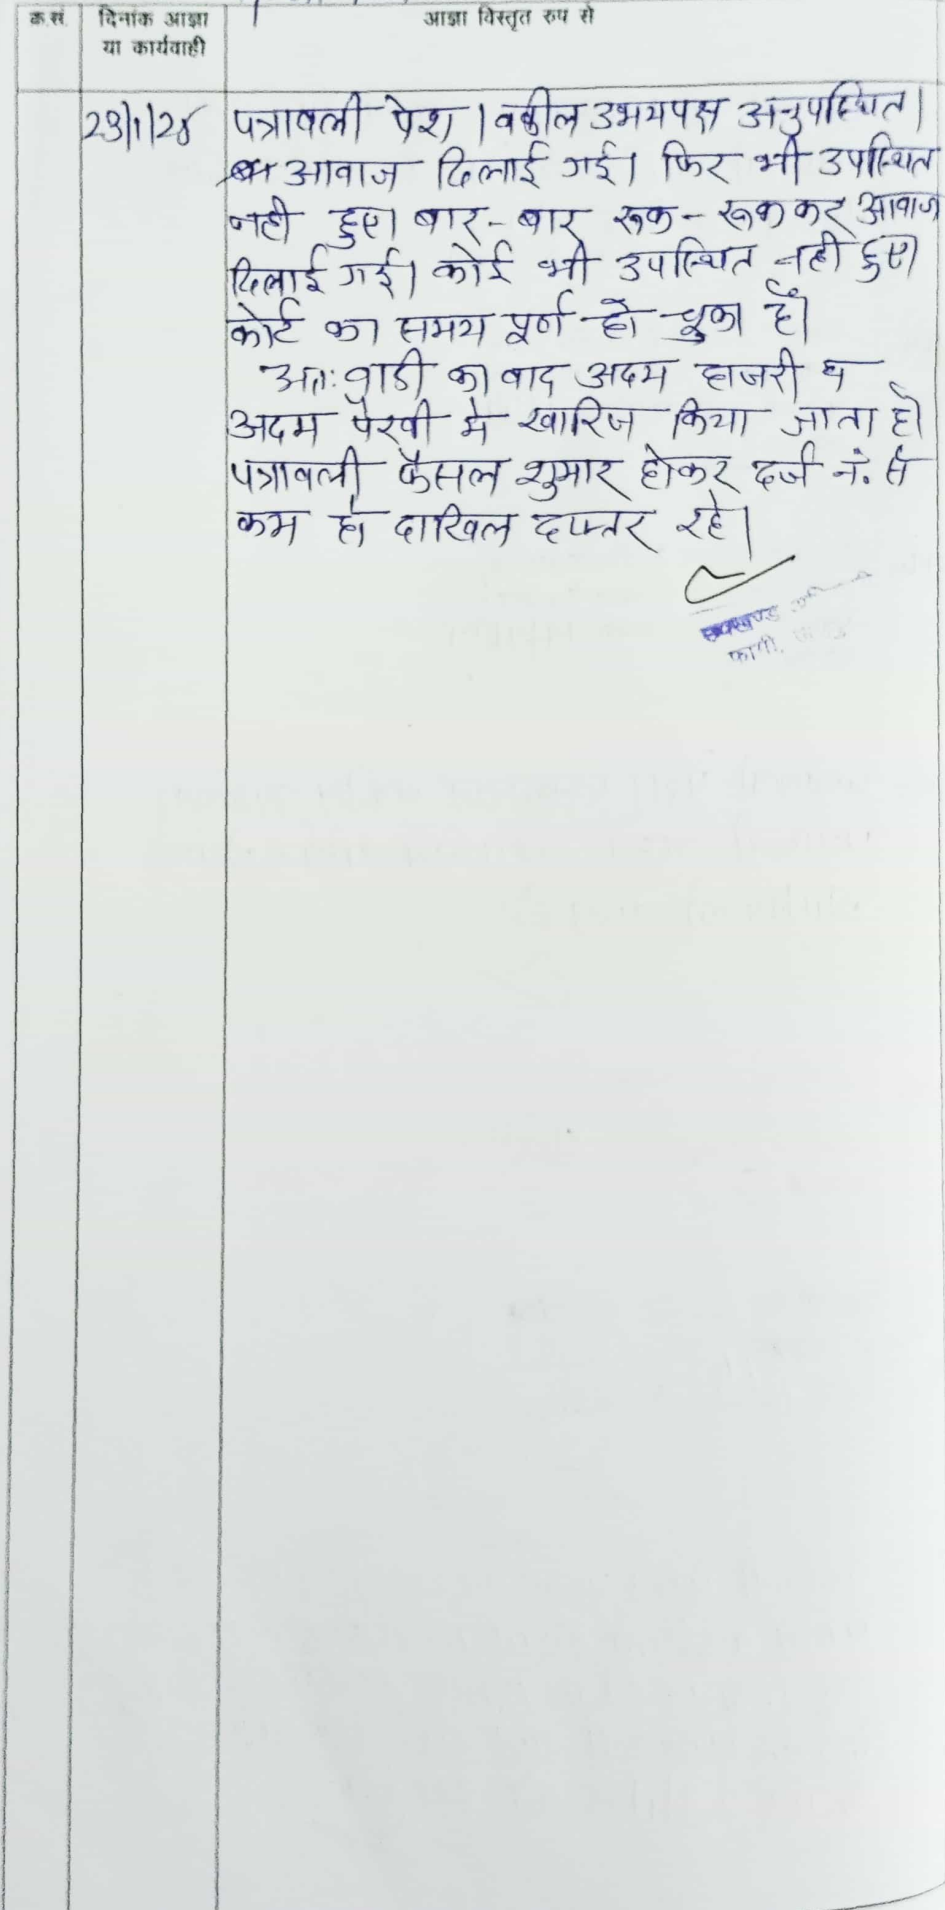 क.सं.
दिनांक आज्ञा
या कार्यवाही
आज्ञा विस्तृत रुप से
पत्रावली पेश। वकील उभयपक्ष अनुपस्थित।
आवाज दिलाई गई। फिर भी उपस्थित
नही हुए। बार-बार रूक-रूककर आवाज
दिलाई गई। कोई भी उपस्थित नही हुए।
कोर्ट का समय पूर्ण हो चुका है।
अतः वादी का वाद अदम हाजरी व
अदम पैरवी मे खारिज किया जाता है।
पत्रावली फैसल शुमार होकर दर्ज नं. से
कम हो दाखिल दफ्तर रहे।
उपखण्ड
फागी,